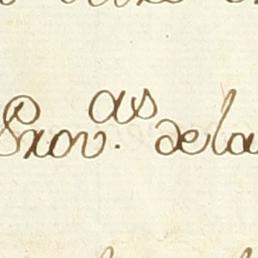 Prov.as de la